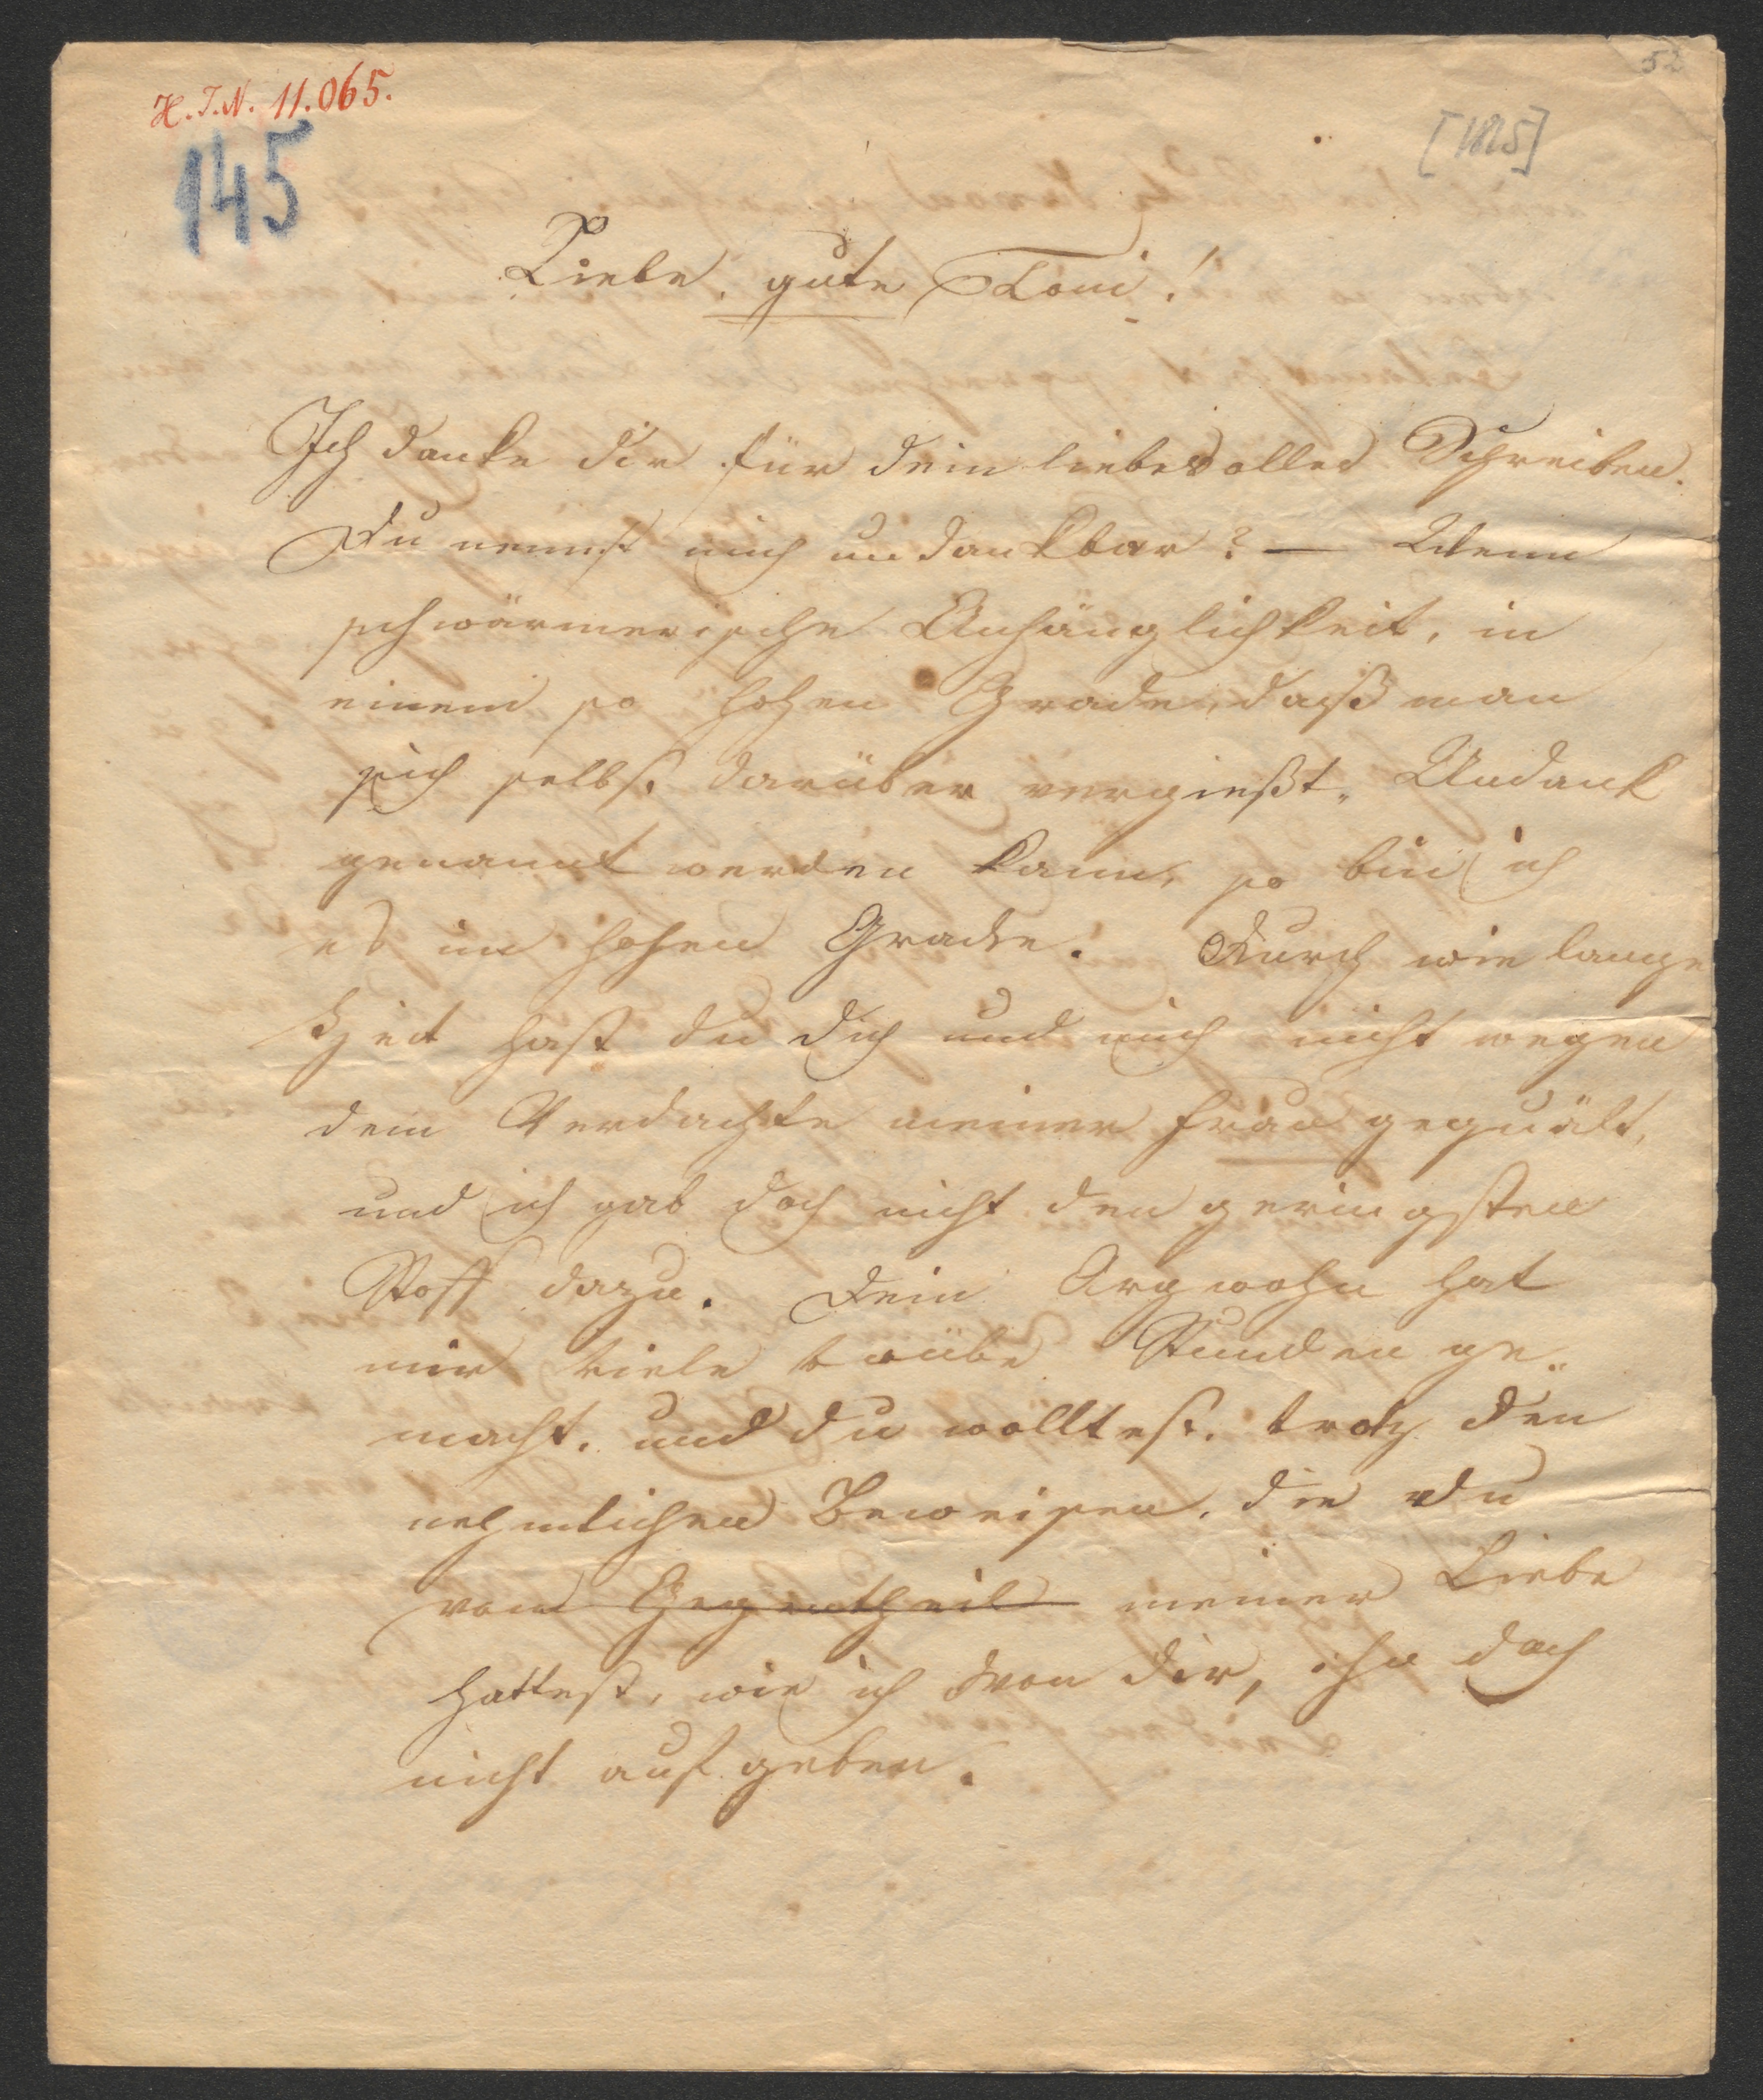 52
H.I.N. 11.065.
[1825]
145
Liebe, gute Toni!
Ich danke dir für dein liebevolles Schreiben.
Du nennst mich undankbar? — Wenn
schwärmerische Anhänglichkeit, in
einem so hohen Grade, daß man
sich selbst darüber vergießt, Undank
genannt werden kann, so bin ich
es im hohen Grade. Durch wie lange
Zeit hast du dich und mich nicht wegen
dem Verdachte meiner Frau gequält,
und ich gab doch nicht den geringsten
Stoff dazu. Dein Argwohn hat
mir viele trübe Stunden ge-
macht, und du wolltest, trotz den
nehmlichen Beweisen, die du
vom Gegentheil meiner Liebe
hattest, wie ich von dir, ihn doch
nicht aufgeben.